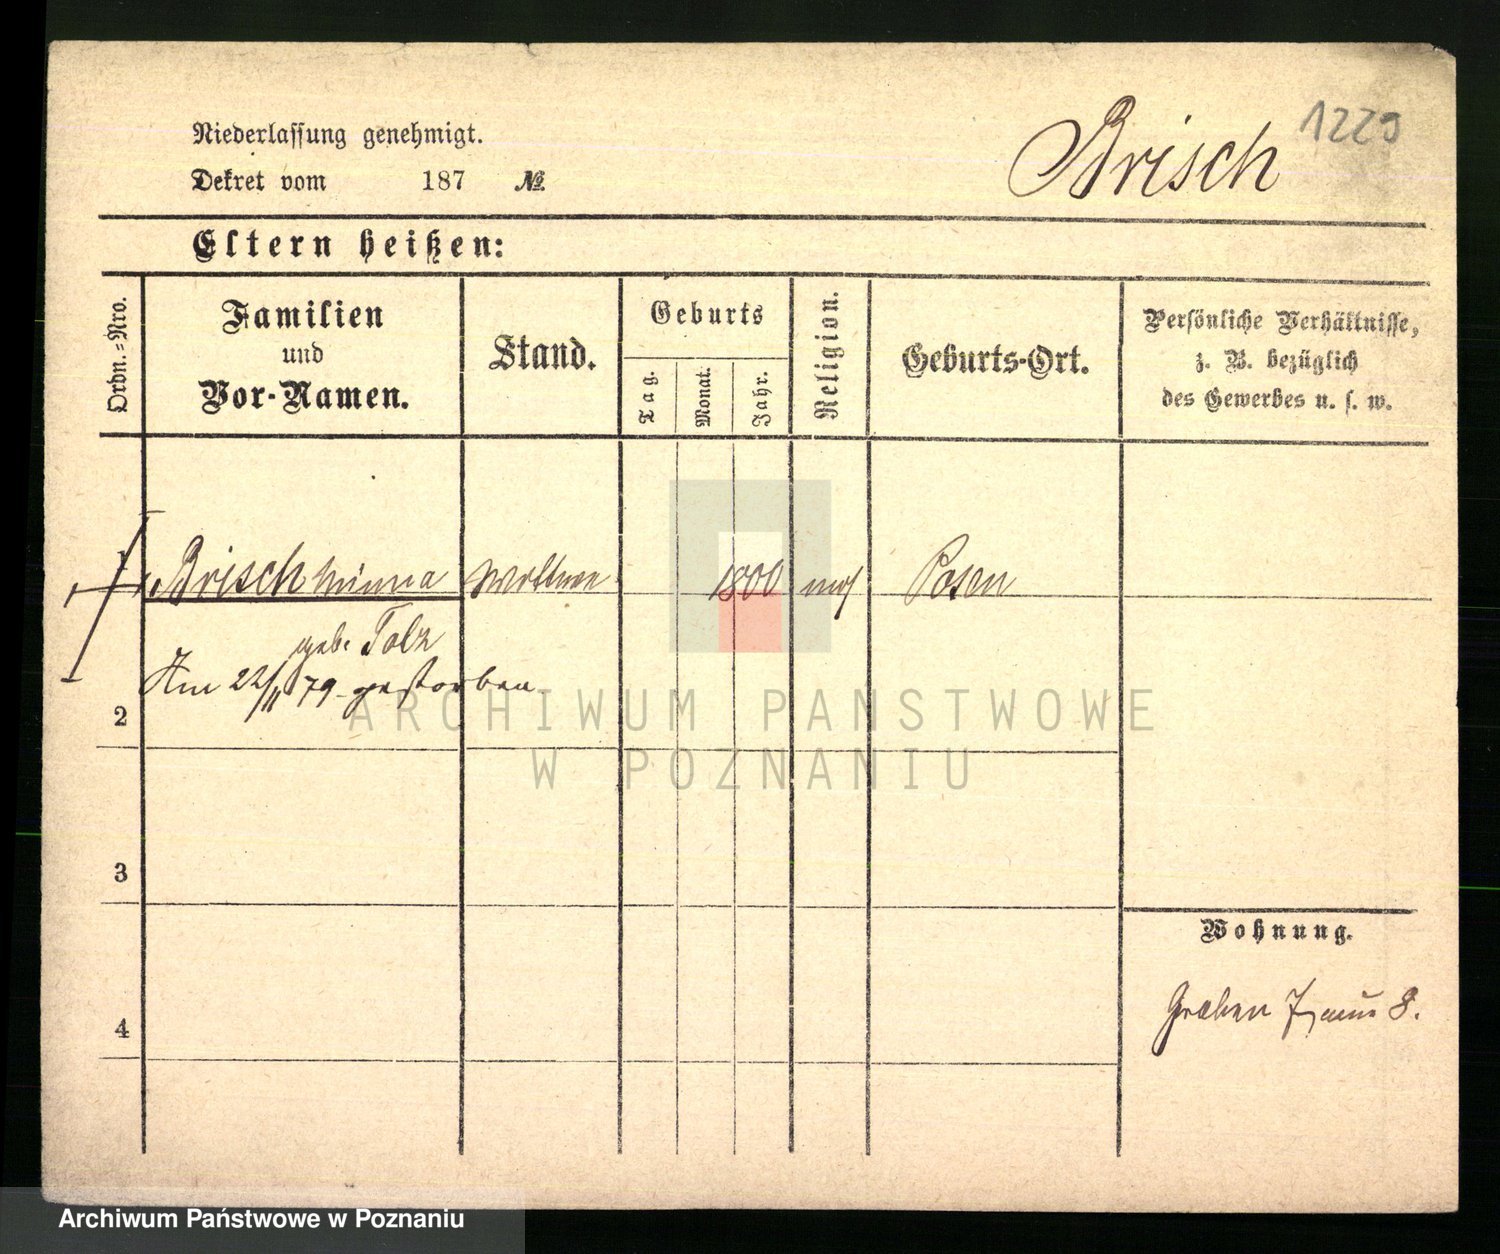 Niederlassung genehmigt.
Dekret vom 187 №
Brisch
1229
Eltern heißen:
Ordn.-Nro.
Familien
und
Vor-Namen.
Stand.
Geburts
Tag.
Monat.
Jahr.
Religion.
Geburts-Ort.
Persönliche Verhältnisse,
z. B. bezüglich
des Gewerbes u. s. w.
1 Brisch Minna Wittwe 1800 mos Posen
geb. Tolz
Am 22/11 79 gestorben
2
3
4
Wohnung.
Graben 8.
ARCHIWUM PAŃSTWOWE
W POZNANIU
Archiwum Państwowe w Poznaniu